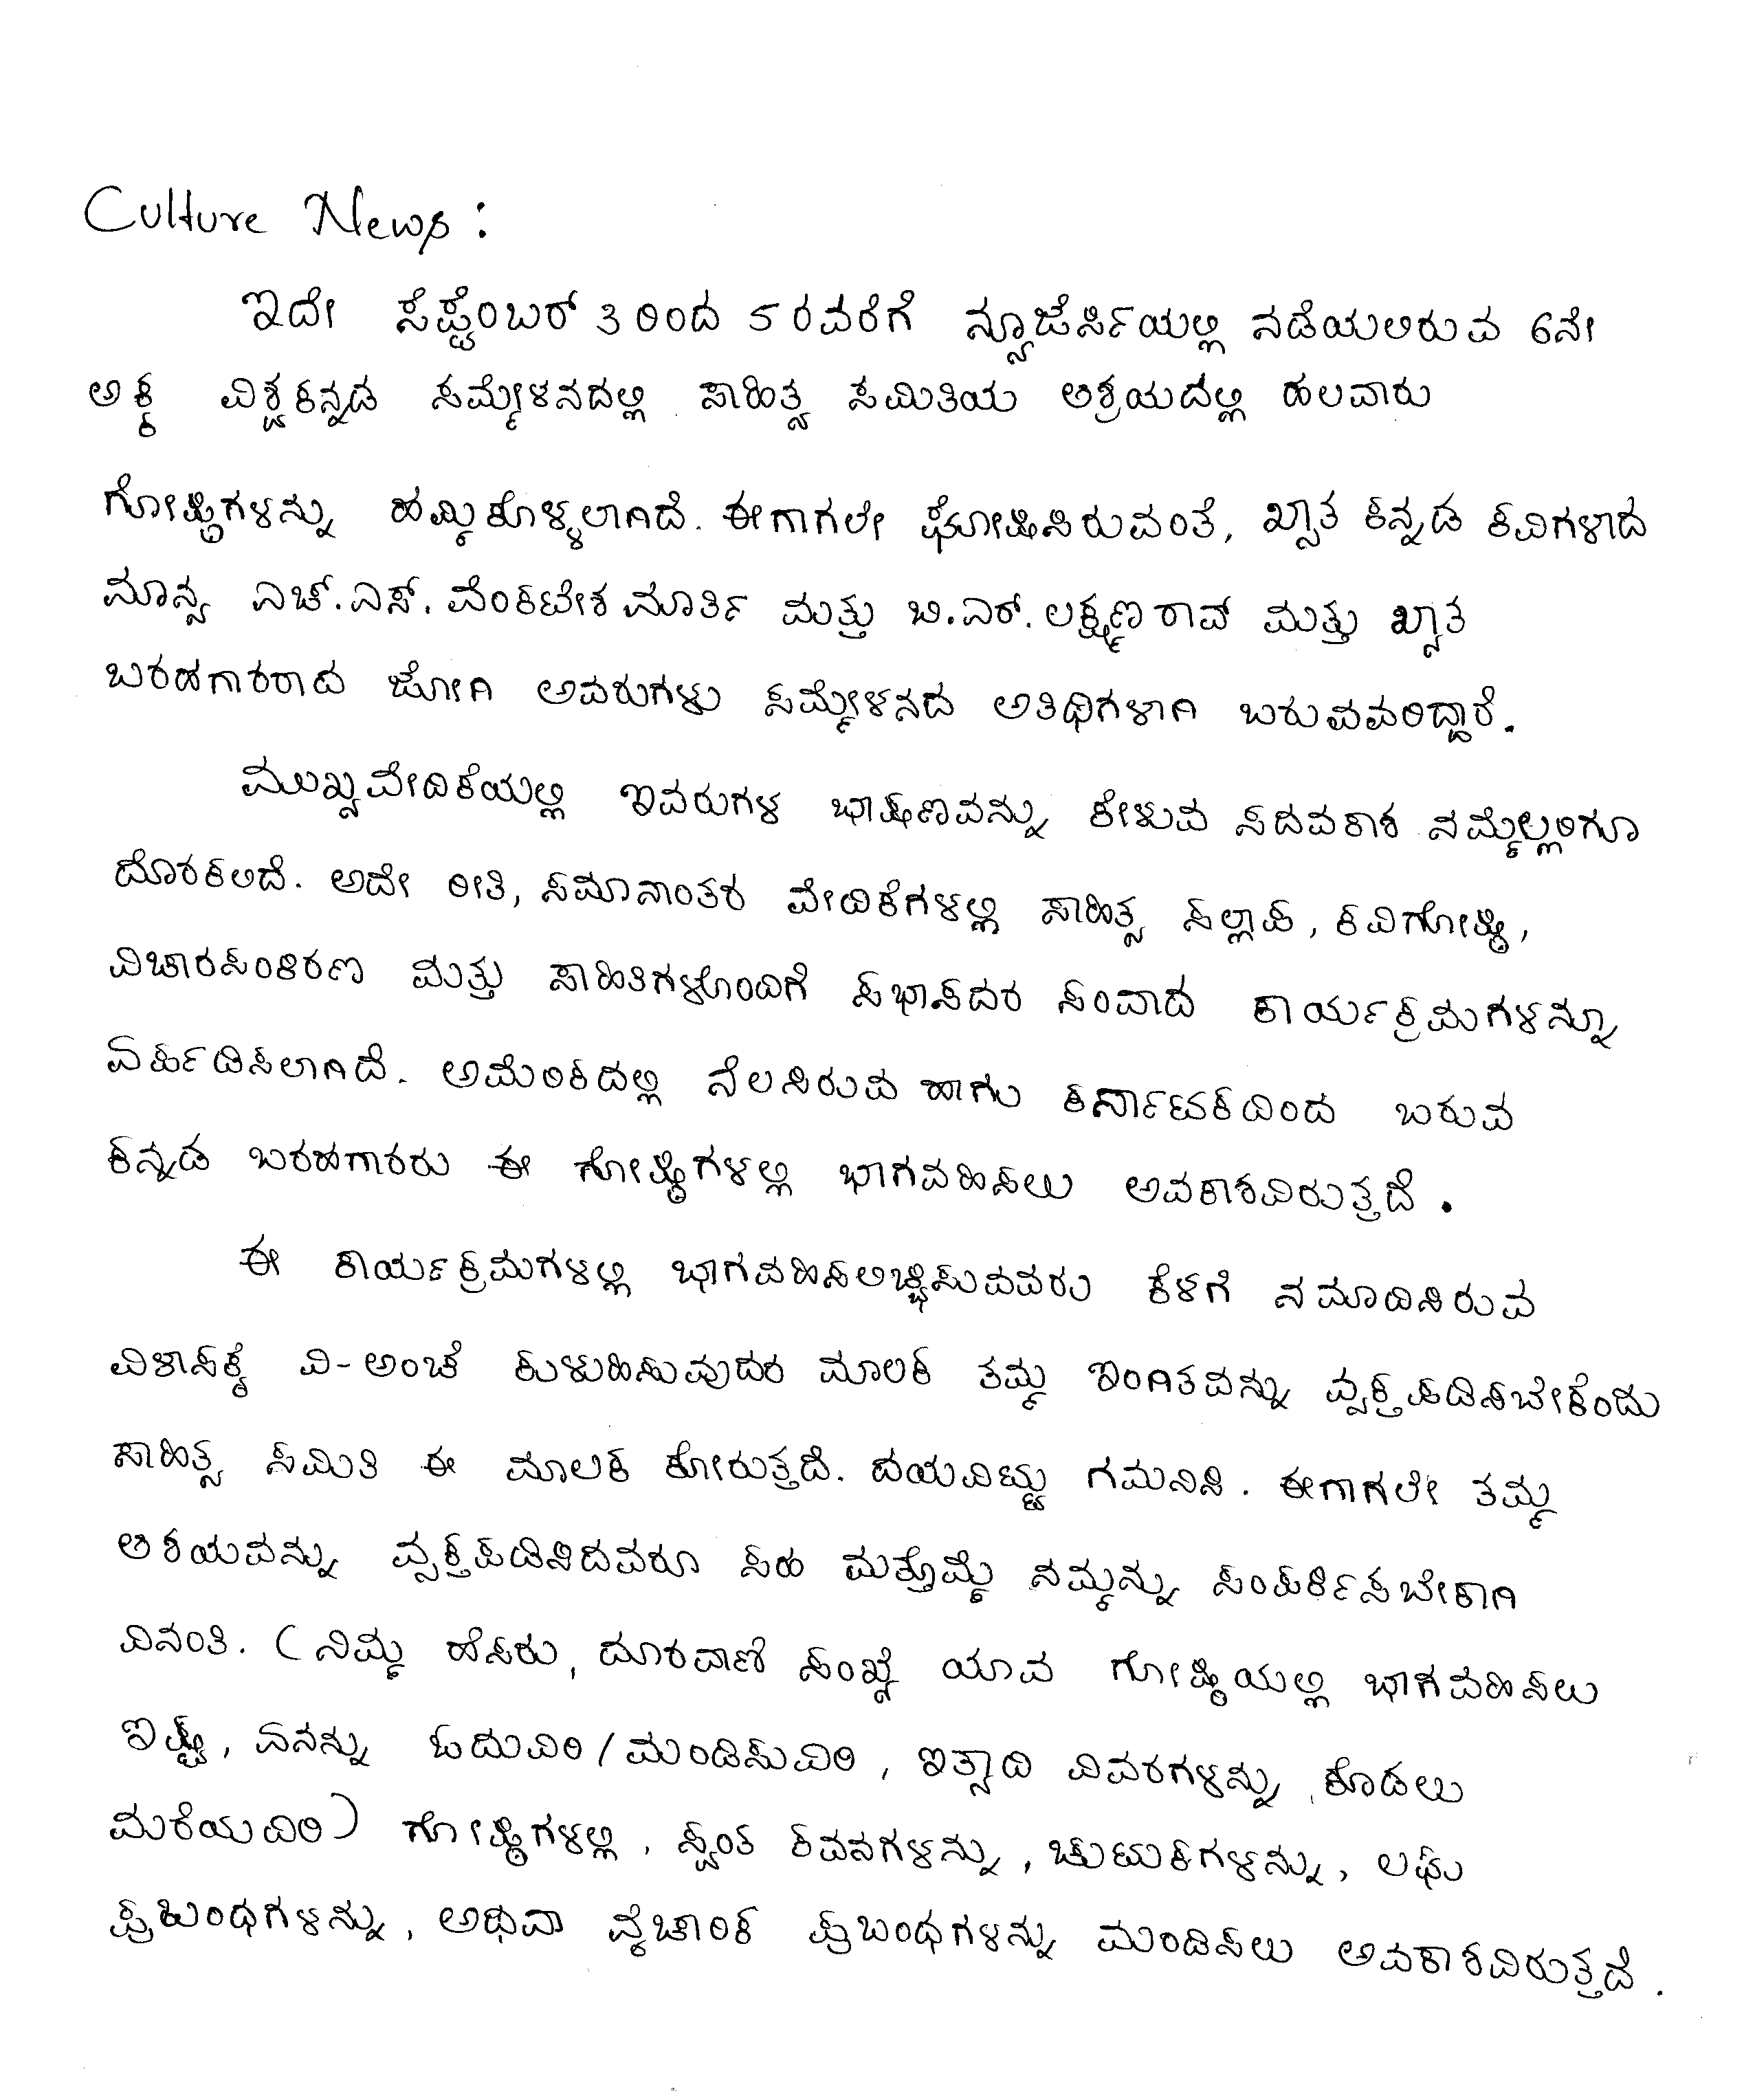 Culture News:
ಇದೇ ಸೆಪ್ಟೆಂಬರ್ 3 ರಿಂದ 5 ರವರೆಗೆ ನ್ಯೂಜೆರ್ಸಿಯಲ್ಲಿ ನಡೆಯಲಿರುವ 6ನೇ
ಅಕ್ಕ ವಿಶ್ವಕನ್ನಡ ಸಮ್ಮೇಳನದಲ್ಲಿ ಸಾಹಿತ್ಯ ಸಮಿತಿಯ ಆಶ್ರಯದಲ್ಲಿ ಹಲವಾರು
ಗೋಷ್ಠಿಗಳನ್ನು ಹಮ್ಮಿಕೊಳ್ಳಲಾಗಿದೆ. ಈಗಾಗಲೇ ಘೋಷಿಸಿರುವಂತೆ, ಖ್ಯಾತ ಕನ್ನಡ ಕವಿಗಳಾದ
ಮಾನ್ಯ ಎಚ್.ಎಸ್. ವೆಂಕಟೇಶ ಮೂರ್ತಿ ಮತ್ತು ಬಿ.ಎರ್. ಲಕ್ಷ್ಮಣ ರಾವ್ ಮತ್ತು ಖ್ಯಾತ
ಬರಹಗಾರರಾದ ಜೋಗಿ ಅವರುಗಳು ಸಮ್ಮೇಳನದ ಅತಿಥಿಗಳಾಗಿ ಬರುವವರಿದ್ದಾರೆ.
ಮುಖ್ಯವೇದಿಕೆಯಲ್ಲಿ ಇವರುಗಳ ಭಾಷಣವನ್ನು ಕೇಳುವ ಸದವಕಾಶ ನಮ್ಮೆಲ್ಲರಿಗೂ
ದೊರಕಲಿದೆ. ಅದೇ ರೀತಿ, ಸಮಾನಾಂತರ ವೇದಿಕೆಗಳಲ್ಲಿ ಸಾಹಿತ್ಯ ಸಲ್ಲಾಪ, ಕವಿಗೋಷ್ಠಿ,
ವಿಚಾರಸಂಕಿರಣ ಮತ್ತು ಸಾಹಿತಿಗಳೊಂದಿಗೆ ಸಭಾಸದರ ಸಂವಾದ ಕಾರ್ಯಕ್ರಮಗಳನ್ನೂ
ಏರ್ಪಡಿಸಲಾಗಿದೆ. ಅಮೆರಿಕದಲ್ಲಿ ನೆಲಸಿರುವ ಹಾಗು ಕರ್ನಾಟಕದಿಂದ ಬರುವ
ಕನ್ನಡ ಬರಹಗಾರರು ಈ ಗೋಷ್ಠಿಗಳಲ್ಲಿ ಭಾಗವಹಿಸಲು ಅವಕಾಶವಿರುತ್ತದೆ.
ಈ ಕಾರ್ಯಕ್ರಮಗಳಲ್ಲಿ ಭಾಗವಹಿಸಲಿಚ್ಛಿಸುವವರು ಕೆಳಗೆ ನಮೂದಿಸಿರುವ
ವಿಳಾಸಕ್ಕೆ ವಿ-ಅಂಚೆ ಕುಳುಹಿಸುವುದರ ಮೂಲಕ ತಮ್ಮ ಇಂಗಿತವನ್ನು ವ್ಯಕ್ತಪಡಿಸಬೇಕೆಂದು
ಸಾಹಿತ್ಯ ಸಮಿತಿ ಈ ಮೂಲಕ ಕೋರುತ್ತದೆ. ದಯವಿಟ್ಟು ಗಮನಿಸಿ. ಈಗಾಗಲೇ ತಮ್ಮ
ಆಶಯವನ್ನು ವ್ಯಕ್ತಪಡಿಸಿದವರೂ ಸಹ ಮತ್ತೊಮ್ಮೆ ನಮ್ಮನ್ನು ಸಂಪರ್ಕಿಸಬೇಕಾಗಿ
ವಿನಂತಿ. (ನಿಮ್ಮ ಹೆಸರು, ದೂರವಾಣಿ ಸಂಖ್ಯೆ ಯಾವ ಗೋಷ್ಠಿಯಲ್ಲಿ ಭಾಗವಹಿಸಲು
ಇಷ್ಟ, ಏನನ್ನು ಓದುವಿರಿ/ಮಂಡಿಸುವಿರಿ, ಇತ್ಯಾದಿ ವಿವರಗಳನ್ನು ಕೊಡಲು
ಮರೆಯದಿರಿ) ಗೋಷ್ಠಿಗಳಲ್ಲಿ, ಸ್ವಂತ ಕವನಗಳನ್ನು, ಚುಟುಕಗಳನ್ನು, ಲಘು
ಪ್ರಬಂಧಗಳನ್ನು, ಅಥವಾ ವೈಚಾರಿಕ ಪ್ರಬಂಧಗಳನ್ನು ಮಂಡಿಸಲು ಅವಕಾಶವಿರುತ್ತದೆ.